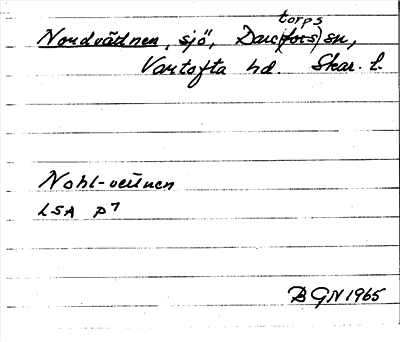 Nordvättnen, sjö, Dare(fors) torps sn,
Vartofta hd. Skar. l.
Nohl-vettnen
LSA P7
BGN 1965